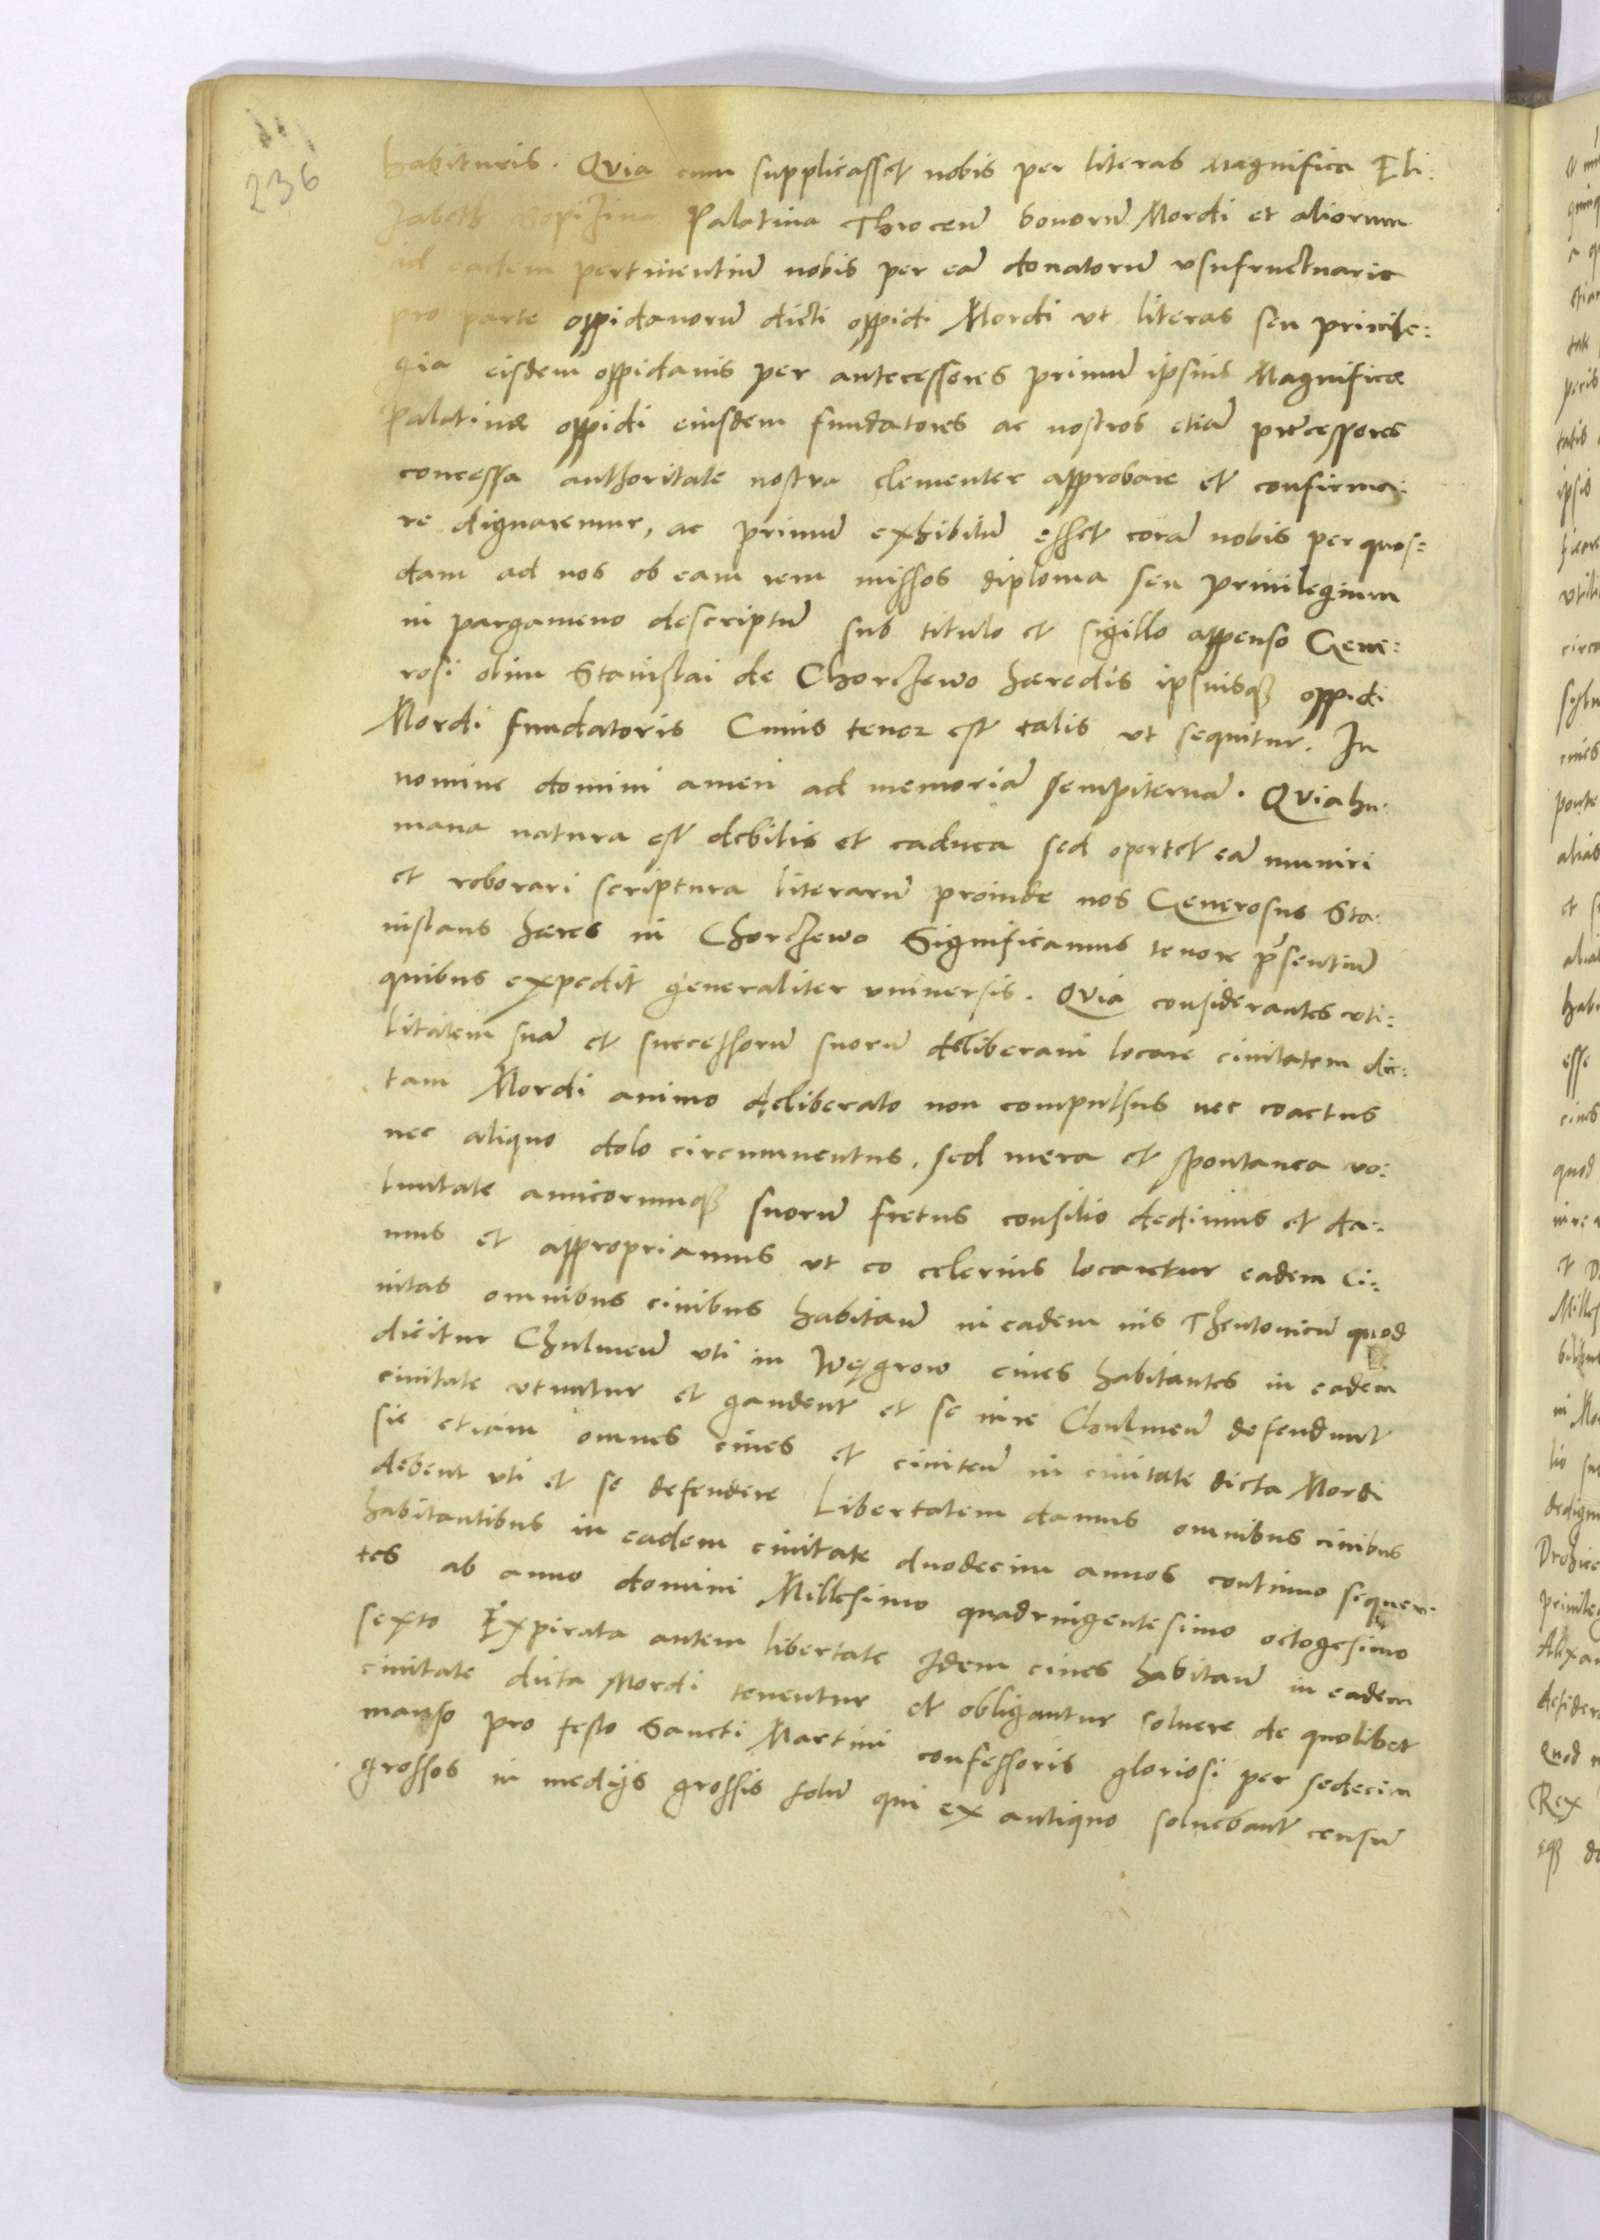 236
habituris. Quia cum supplicasset nobis per literas Magnifica Eli:
zabeth Sopizina Palatina Throceñ bonorũ Mordi et aliorum
ad eadem pertinentiũ nobis per eã donatorũ usufructuaria
pro parte oppidanorũ dicti oppidi Mordi ut literas seu privile:
gia eisdem oppidanis per antecessores primũ ipsius Magnificæ
Palatinæ oppidi eiusdem fundatores ac nostros etiã præcessores
concessa authoritate nostra clementer approbare et confirma:
re dignaremur, ac primũ exhibitũ esset corã nobis per quos:
dam ad nos ob eam rem missos diploma seu privilegium
in pargameno descriptũ sub titulo et sigillo appenso Gene:
rosi olim Stanislai de Chorzewo hæredis ipsiusq; oppidi
Mordi fundatoris Cuius tenor est talis ut sequitur. In
nomine domini amen ad memoriã sempiternã. Quia hu:
mana natura est debilis et caduca sed oportet eã muniri
et roborari scriptura literarũ proinde nos Generosus Sta:
nislaus hæres in Chorzewo Significamus tenore p̃sentiũ
quibus expedit generaliter universis. Quia considerantes uti:
litatem suã et successorũ suorũ deliberavi locare civitatem dic:
tam Mordi animo deliberato non compulsus nec coactus
nec aliquo dolo circumventus, sed mera et spontanea vo:
luntate amicorumq; suorũ fretus consilio dedimus et da:
mus et appropriamus ut eo celerius locaretur eadem ci:
vitas omnibus civibus habitañ in eadem ius Theutonicũ quod
dicitur Chulmeñ uti in Węgrow cives habitantes in eadem
civitate utuntur et gaudent et se iure Chulmeñ defendunt
sic etiam omnes cives et civiteñ in civitate dicta Mordi
debent uti et se defendere Libertatem damus omnibus civibus
habitantibus in eadem civitate duodecim annos continuo sequen:
tes ab anno domini Millesimo quadringentesimo octogesimo
sexto Expirata autem libertate Idem cives habitañ in eadem
civitate dicta Mordi tenentur et obligantur solvere de quolibet
manso pro festo Sancti Martini confessoris gloriosi per sedecim
grossos in medijs grossis solũ qui ex antiquo solvebant censũ